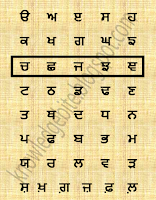 ੳ ਅ ੲ ਸ ਹ
ਕ ਖ ਗ ਘ ਙ
ਚ ਛ ਜ ਝ ਞ
ਟ ਠ ਡ ਢ ਣ
ਤ ਥ ਦ ਧ ਨ
ਪ ਫ ਬ ਭ ਮ
ਯ ਰ ਲ ਵ ੜ
ਸ਼ ਖ਼ ਗ਼ ਜ਼ ਫ਼ ਲ਼
knowledgebite.blogspot.com